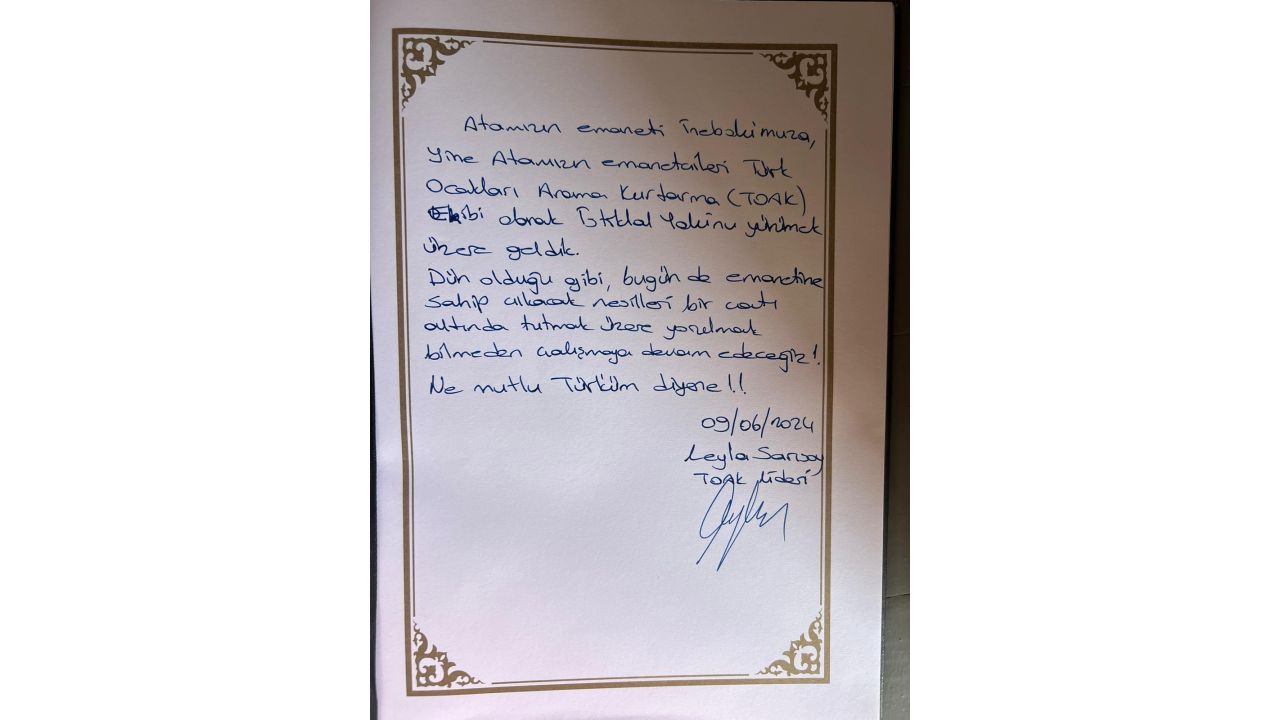 Atamızın emaneti İnebolu'muza,
Yine Atamızın emanetçileri Türk
Ocakları Arama Kurtarma (TOAK)
Ekibi olarak İstiklal Yolu'nu yürümek
üzere geldik.
Dün olduğu gibi, bugün de emanetine
sahip çıkacak nesilleri bir çatı
altında tutmak üzere yorulmak
bilmeden çalışmaya devam edeceğiz!
Ne mutlu Türküm diyene!!
09/06/2024
Leyla Sarısoy
TOAK Lideri